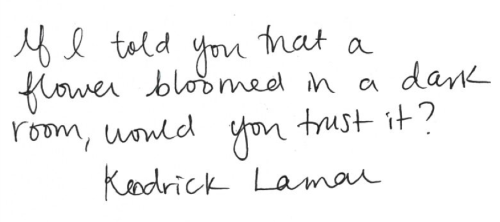 If I told you that a
flower bloomed in a dark
room, would you trust it?
Kendrick Lamar